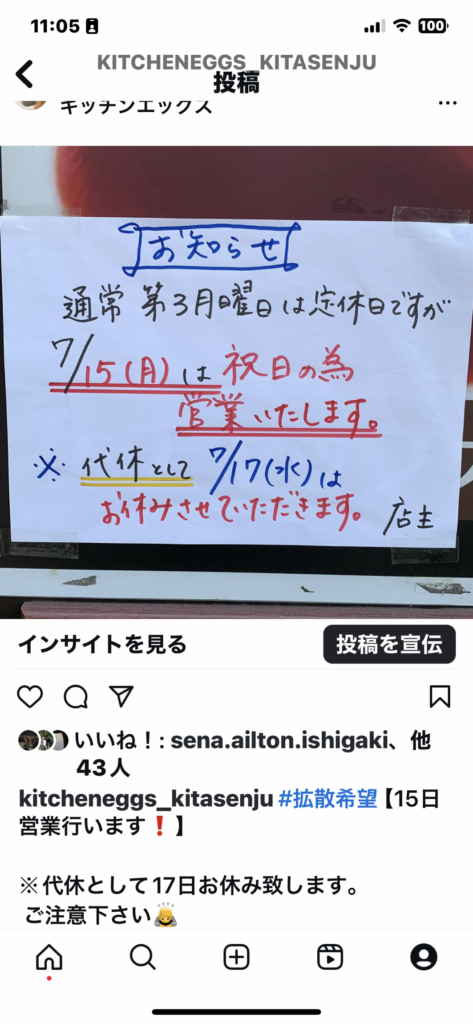 11:05
100
KITCHENEGGS_KITASENJU
投稿
キッチンエッグス
お知らせ
通常 第3月曜日は定休日ですが
7/15(月)は祝日の為
営業いたします。
※代休として 7/17(水)は
お休みさせていただきます。 店主
インサイトを見る
投稿を宣伝
いいね!: sena.ailton.ishigaki、他
43人
kitcheneggs_kitasenju #拡散希望【15日
営業行います❗】
※代休として17日お休み致します。
ご注意下さい🙇